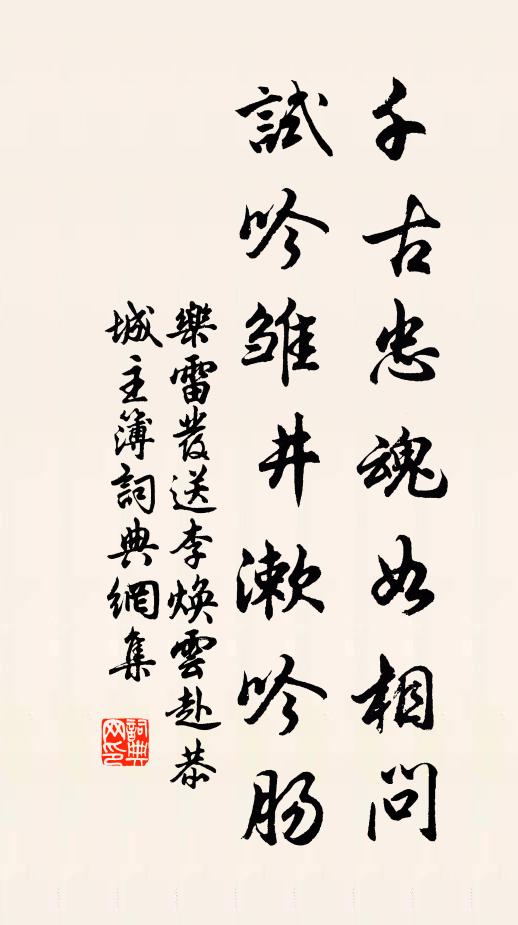 千古忠魂如相問
試吟雏井漱吟肠
樂雷發送李煥雲赴恭
城主簿詞典網集
詞典